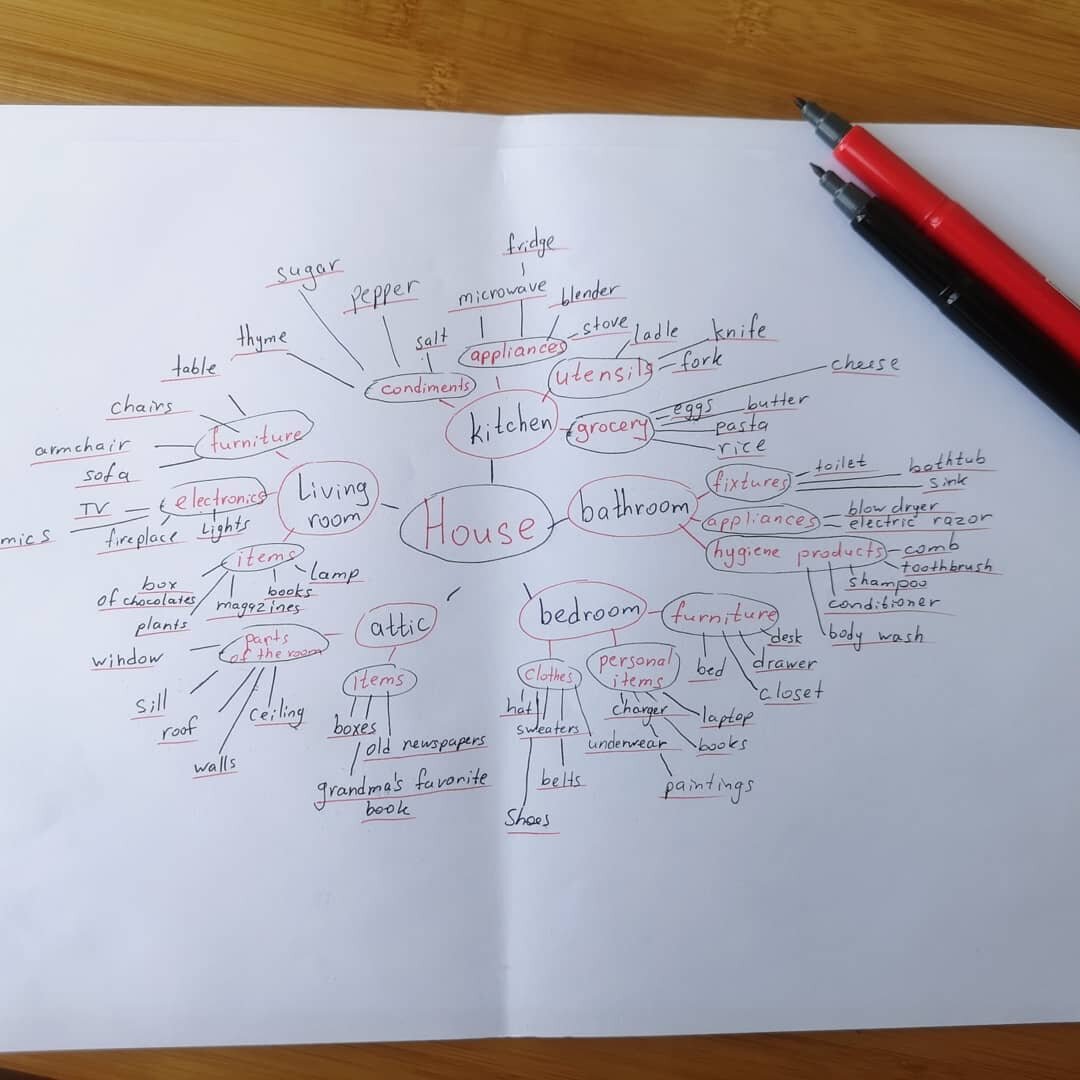 fridge
sugar
pepper
microwave
blender
thyme
salt
stove
ladle
knife
appliances
table
condiments
utensils
fork
cheese
chairs
eggs
butter
kitchen
grocery
pasta
furniture
rice
armchair
sofa
Living
room
fixtures
toilet
bathtub
sink
electronics
TV
bathroom
blow dryer
House
appliances
electric razor
Lights
fireplace
items
hygiene products
comb
toothbrush
Lamp
box
of chocolates
books
shampoo
magazines
conditioner
plants
attic
bedroom
furniture
parts
of the room
desk
body wash
window
personal
items
bed
drawer
clothes
items
closet
sill
ceiling
hat
charger
laptop
roof
boxes
sweaters
old newspapers
underwear
books
walls
grandma's favorite
book
belts
paintings
Shoes